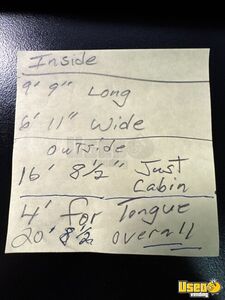 Inside
9' 9" Long
6' 11" Wide
Outside
16' 8½" Just
Cabin
4' for Tongue
20' 8½ overall
Used
vending